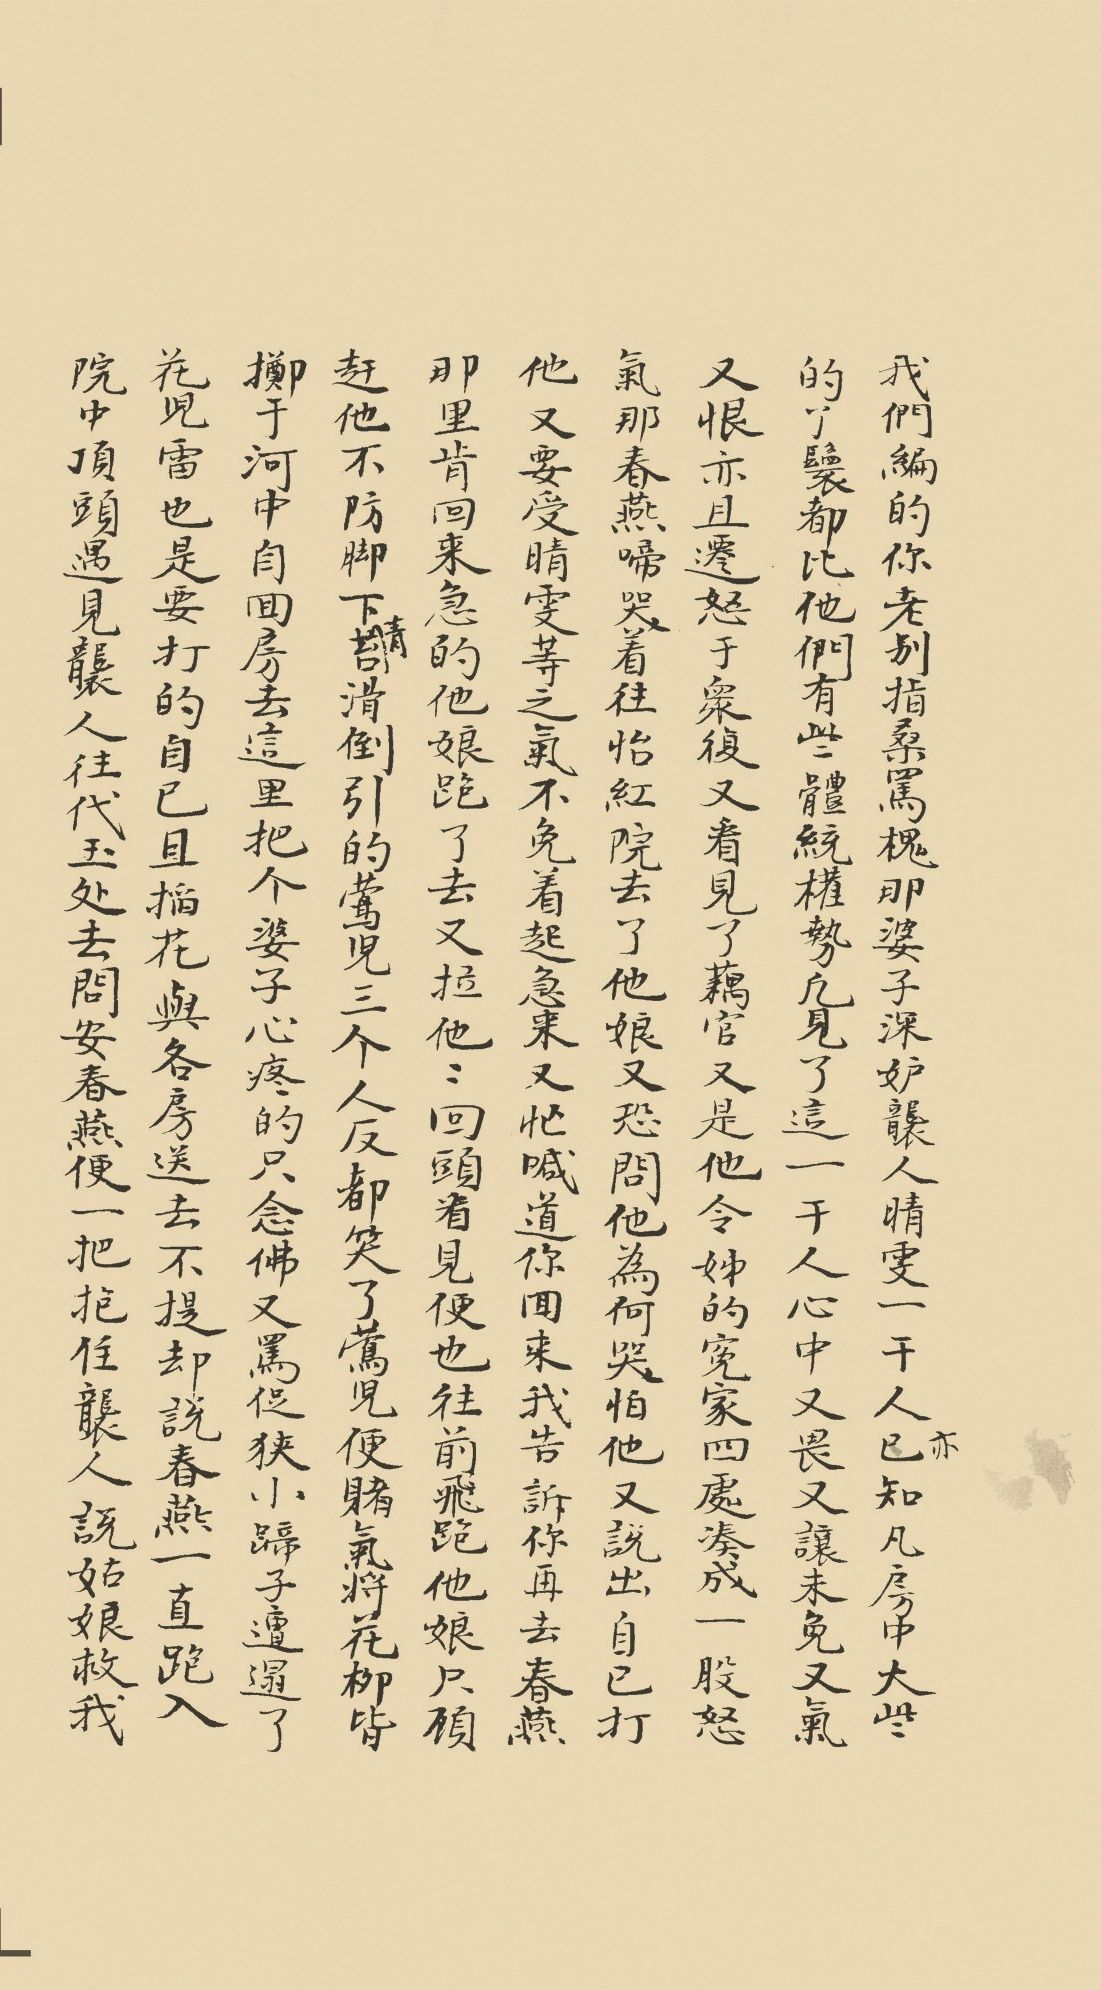 我們編的你老别指桑罵槐那婆子深妒襲人晴雯一干人亦已知凡房中大些
的丫鬟都比他們有些體統權勢凡見了這一干人心中又畏又讓未免又氣
又恨亦且遷怒于衆復又看見了藕官又是他令姊的寃家四處凑成一股怒
氣那春燕啼哭着往怡紅院去了他娘又恐問他為何哭怕他又説出自己打
他又要受晴雯等之氣不免着起急来又忙喊道你回来我告訴你再去春燕
那里肯回来急的他娘跑了去又拉他〻回頭看見便也往前飛跑他娘只顧
赶他不防脚下青苔滑倒引的鶯児三个人反都笑了鶯児便賭氣将花柳皆
擲于河中自回房去這里把个婆子心疼的只念佛又罵促狭小蹄子遭遢了
花児雷也是要打的自己且掐花與各房送去不提却説春燕一直跑入
院中頂頭遇見襲人往代玉处去問安春燕便一把抱住襲人説姑娘救我